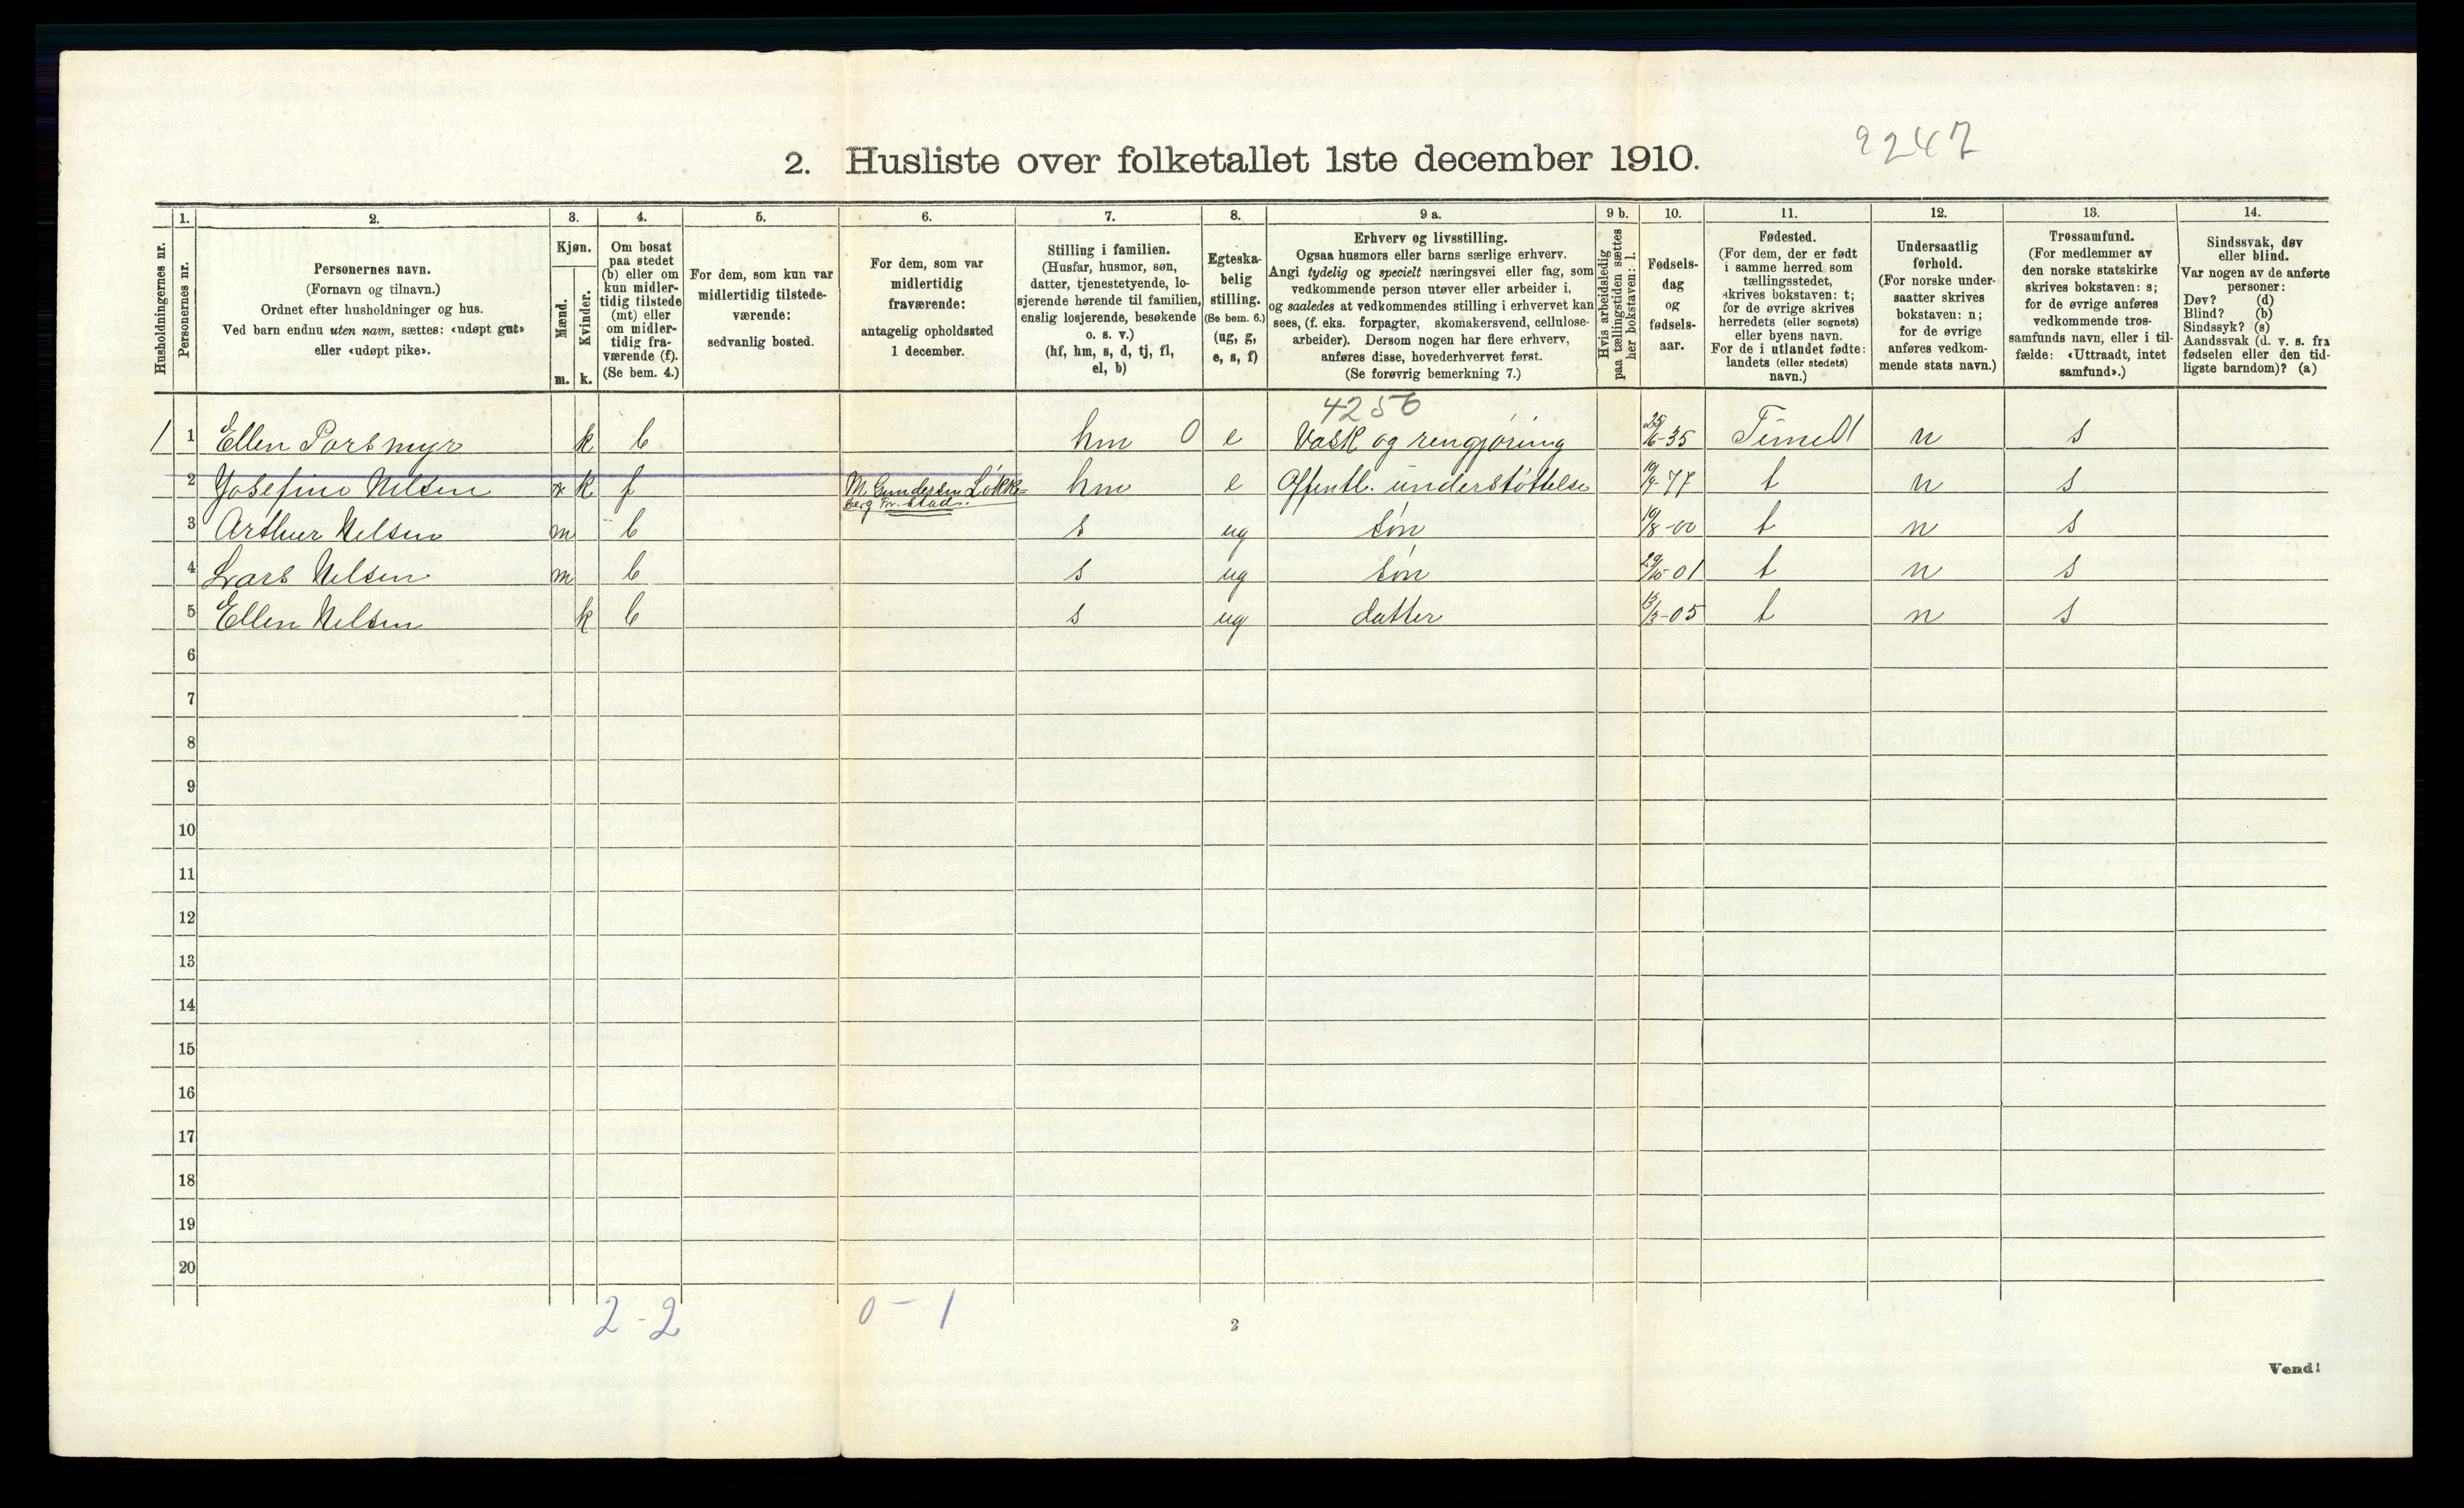 2. Husliste over folketallet 1ste december 1910.
2247
Husholdningernes nr.
1.
Personernes nr.
2.
Personernes navn.
(Fornavn og tilnavn.)
Ordnet efter husholdninger og hus.
Ved barn endnu uten navn, sættes: «udøpt gut»
eller «udøpt pike».
3.
Kjøn.
Mænd.
Kvinder.
m. k.
4.
Om bosat
paa stedet
(b) eller om
kun midler-
tidig tilstede
(mt) eller
om midler-
tidig fra-
værende (f).
(Se bem. 4.)
5.
For dem, som kun var
midlertidig tilstede-
værende:
sedvanlig bosted.
6.
For dem, som var
midlertidig
fraværende:
antagelig opholdssted
1 december.
7.
Stilling i familien.
(Husfar, husmor, søn,
datter, tjenestetyende, lo-
sjerende hørende til familien,
enslig losjerende, besøkende
o. s. v.)
(hf, hm, s, d, tj, fl,
el, b)
8.
Egteska-
belig
stilling.
(Se bem. 6.)
(ug, g,
e, s, f)
9 a.
Erhverv og livsstilling.
Ogsaa husmors eller barns særlige erhverv.
Angi tydelig og specielt næringsvei eller fag, som
vedkommende person utøver eller arbeider i,
og saaledes at vedkommendes stilling i erhvervet kan
sees, (f. eks. forpagter, skomakersvend, cellulose-
arbeider). Dersom nogen har flere erhverv,
anføres disse, hovederhvervet først.
(Se forøvrig bemerkning 7.)
9 b.
Hvis arbeidsledig
paa tællingstiden sættes
her bokstaven: l.
10.
Fødsels-
dag
og
fødsels-
aar.
11.
Fødested.
(For dem, der er født
i samme herred som
tællingsstedet,
skrives bokstaven: t;
for de øvrige skrives
herredets (eller sognets)
eller byens navn.
For de i utlandet fødte:
landets (eller stedets)
navn.)
12.
Undersaatlig
forhold.
(For norske under-
saatter skrives
bokstaven: n;
for de øvrige
anføres vedkom-
mende stats navn.)
13.
Trossamfund.
(For medlemmer av
den norske statskirke
skrives bokstaven: s;
for de øvrige anføres
vedkommende tros-
samfunds navn, eller i til-
fælde: «Uttraadt, intet
samfund».)
14.
Sindssvak, døv
eller blind.
Var nogen av de anførte
personer:
Døv? (d)
Blind? (b)
Sindssyk? (s)
Aandssvak (d. v. s. fra
fødselen eller den tid-
ligste barndom)? (a)
4256
1 1 Ellen Porsmyr k b hm 0 e Vask og rengjøring 25/6-35 n s
2 Josefine Nilsen k f M Gundersen Løkke=
berg Fr.stad. hm e Offentl. understøttelse 19/9-77 t n s
3 Arthur Nilsen m b s ug søn 19/8-00 t n s
4 Lars Nilsen m b s ug søn 29/10-01 t n s
5 Ellen Nilsen k b s ug datter 13/3-05 t n s
6
7
8
9
10
11
12
13
14
15
16
17
18
19
20
2-2 0-1
2
Vend!